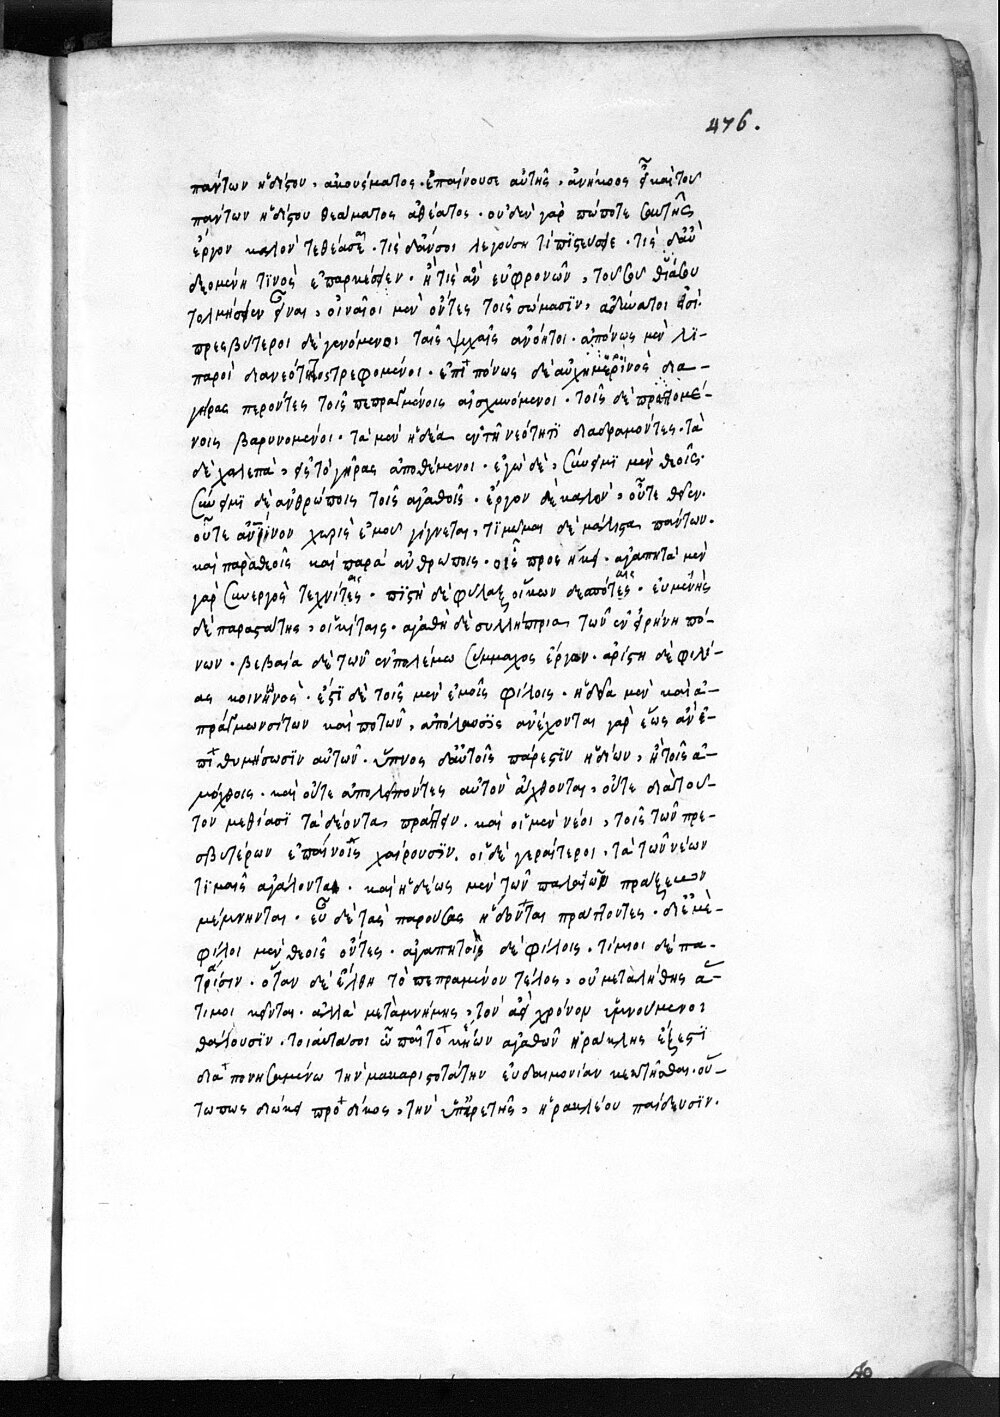 476.
πάντων ἡδίστου, ἀκούσματος ἐπαίνου σεαυτῆς, ἀνήκοος εἶ καὶ τοῦ
πάντων ἡδίστου θεάματος ἀθέατος · οὐδὲν γὰρ πώποτε σαυτῆς
ἔργον καλὸν τεθέασαι · τίς δ' ἄν σοι λεγούση τι πιστεύσειε · τίς δ' ἂν
δεομένη τινὸς ἐπαρκέσειεν · ἢ τίς ἂν εὐφρονῶν, τοῦ σοῦ θιάσου
τολμήσειεν εἶναι, οἳ νέοι μὲν ὄντες τοῖς σώμασιν, ἀδύνατοι εἰσί·
πρεσβύτεροι δὲ γενόμενοι ταῖς ψυχαῖς ἀνόητοι · ἀπόνως μὲν λι-
παροὶ διὰ νεότητος τρεφόμενοι · ἐπιπόνως δὲ αὐχμηροὶ διὰ
γήρως περῶντες τοῖς πεπραγμένοις αἰσχυνόμενοι · τοῖς δὲ πραττομέ-
νοις βαρυνομένοι · τὰ μὲν ἡδέα ἐν τῇ νεότητι διαδραμόντες · τὰ
δὲ χαλεπὰ, εἰς τὸ γῆρας ἀποθέμενοι · ἐγὼ δὲ, σύνειμι μὲν θεοῖς·
σύνειμι δὲ ἀνθρώποις τοῖς ἀγαθοῖς · ἔργον δὲ καλὸν, οὔτε θεῖον·
οὔτε ἀνθρώπινον χωρὶς ἐμοῦ γίγνεται, τιμῶμαι δὲ μάλιστα πάντων·
καὶ παρὰ θεοῖς καὶ παρὰ ἀνθρώποις · οἷς προσήκει · ἀγαπητὰ μὲν
γὰρ συνεργὸς τεχνίταις · πιστὴ δὲ φύλαξ οἴκων δεσπόταις · εὐμενὴς
δὲ παραστάτης, οἰκέταις · ἀγαθὴ δὲ συλλήπτρια τῶν ἐν εἰρήνη πό-
νων · βεβαία δὲ τῶν ἐν πολέμω σύμμαχος ἔργων · ἀρίστη δὲ φιλί-
ας κοινωνὸς · ἐστὶ δὲ τοῖς μὲν ἐμοῖς φίλοις · ἡδεῖα μὲν καὶ ἀ-
πράγμων σίτων καὶ ποτῶν, ἀπόλαυσις ἀνέχονται γὰρ ἕως ἂν ἐ-
πιθυμήσωσιν αὐτῶν · ὕπνος δ' αὐτοῖς πάρεστιν ἡδίων, ἢ τοῖς ἀ-
μόχθοις · καὶ οὔτε ἀπολείποντες αὐτὸν ἄχθονται, οὔτε διὰ τοῦ-
τον μεθίασι τὰ δέοντα πράττειν · καὶ οἱ μὲν νέοι, τοῖς τῶν πρε-
σβυτέρων ἐπαίνοις χαίρουσιν · οἱ δὲ γεραίτεροι, ταῖς τῶν νέων
τιμαῖς ἀγάλονται · καὶ ἡδέως μὲν τῶν παλαιῶν πράξεων
μέμνηνται · εὖ δὲ τὰς παρούσας ἥδονται πράττοντες · δι' ἐμὲ
φίλοι μὲν θεοῖς ὄντες · ἀγαπητοὶ δὲ φίλοις · τίμιοι δὲ πα-
τρίσιν · ὅταν δὲ ἔλθη τὸ πεπραμένον τέλος, οὐ μετὰ λήθης ἄ-
τιμοι κεῖνται · ἀλλὰ μετὰ μνήμης, τὸν ἀεὶ χρόνον ὑμνούμενοι
θάλλουσιν · τοιαῦτά σοι ὦ παῖ τοκέων ἀγαθῶν ἡράκλης ἔξεστι
διαπονησαμένω τὴν μακαριστοτάτην εὐδαιμονίαν κεκτῆσθαι · οὕ-
τω πως διώκει πρόδικος, τὴν ὑπ' ἀρετῆς, ἡρακλέου παίδευσιν.